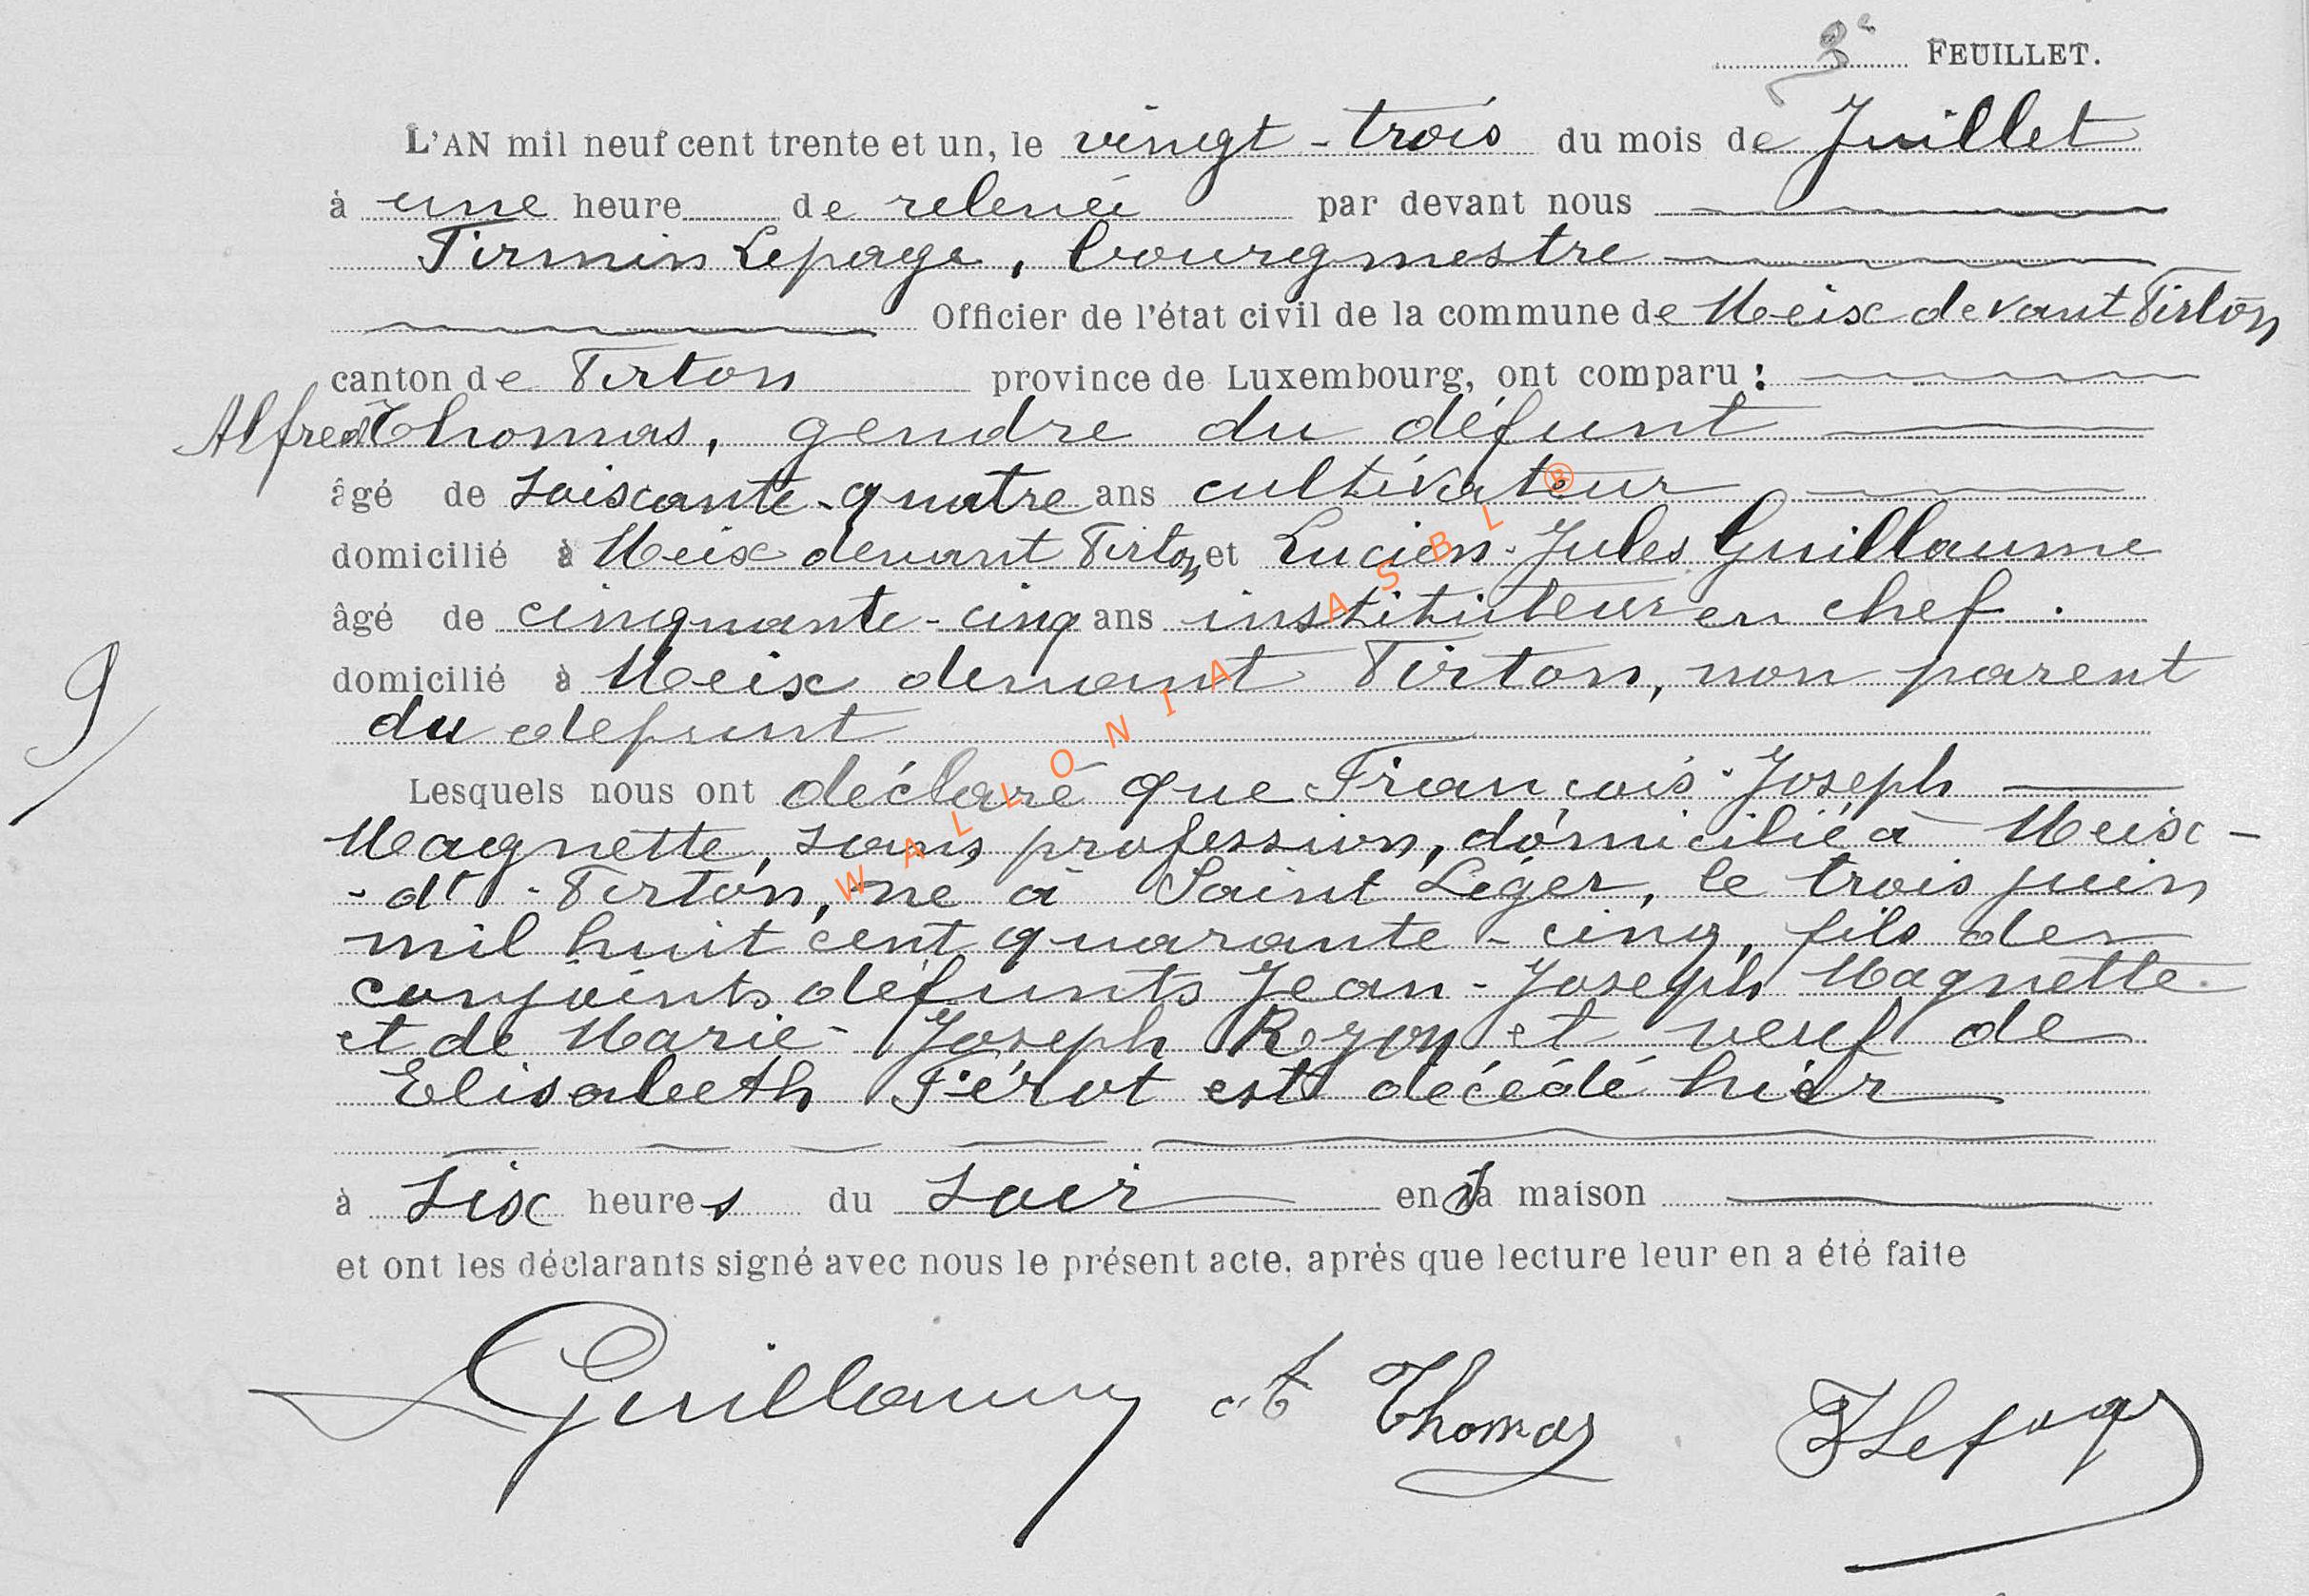 3e FEUILLET.
L'AN mil neuf cent trente et un, le vingt-trois du mois de Juillet
à une heure de relevée par devant nous
Firmin Lepage, bourgmestre
Officier de l'état civil de la commune de Meix devant Virton
canton de Virton province de Luxembourg, ont comparu :
Alfred Thomas, gendre du défunt
âgé de soixante-quatre ans cultivateur
domicilié à Meix devant Virton et Lucien-Jules Guillaume
âgé de cinquante-cinq ans instituteur en chef.
domicilié à Meix devant Virton, non parent
du defunt
9/
Lesquels nous ont déclaré que François-Joseph
Magnette, sans profession, domicilié à Meix-
-dt-Virton, né à Saint Léger, le trois juin
mil huit cent quarante-cinq, fils des
conjoints défunts Jean-Joseph Magnette
et de Marie-Joseph Rozon et veuf de
Elisabeth Férot est décédé hier
à six heures du soir en sa maison
et ont les déclarants signé avec nous le présent acte, après que lecture leur en a été faite
LGuillaume At Thomas FLepage
WALLONIA ASBL ®